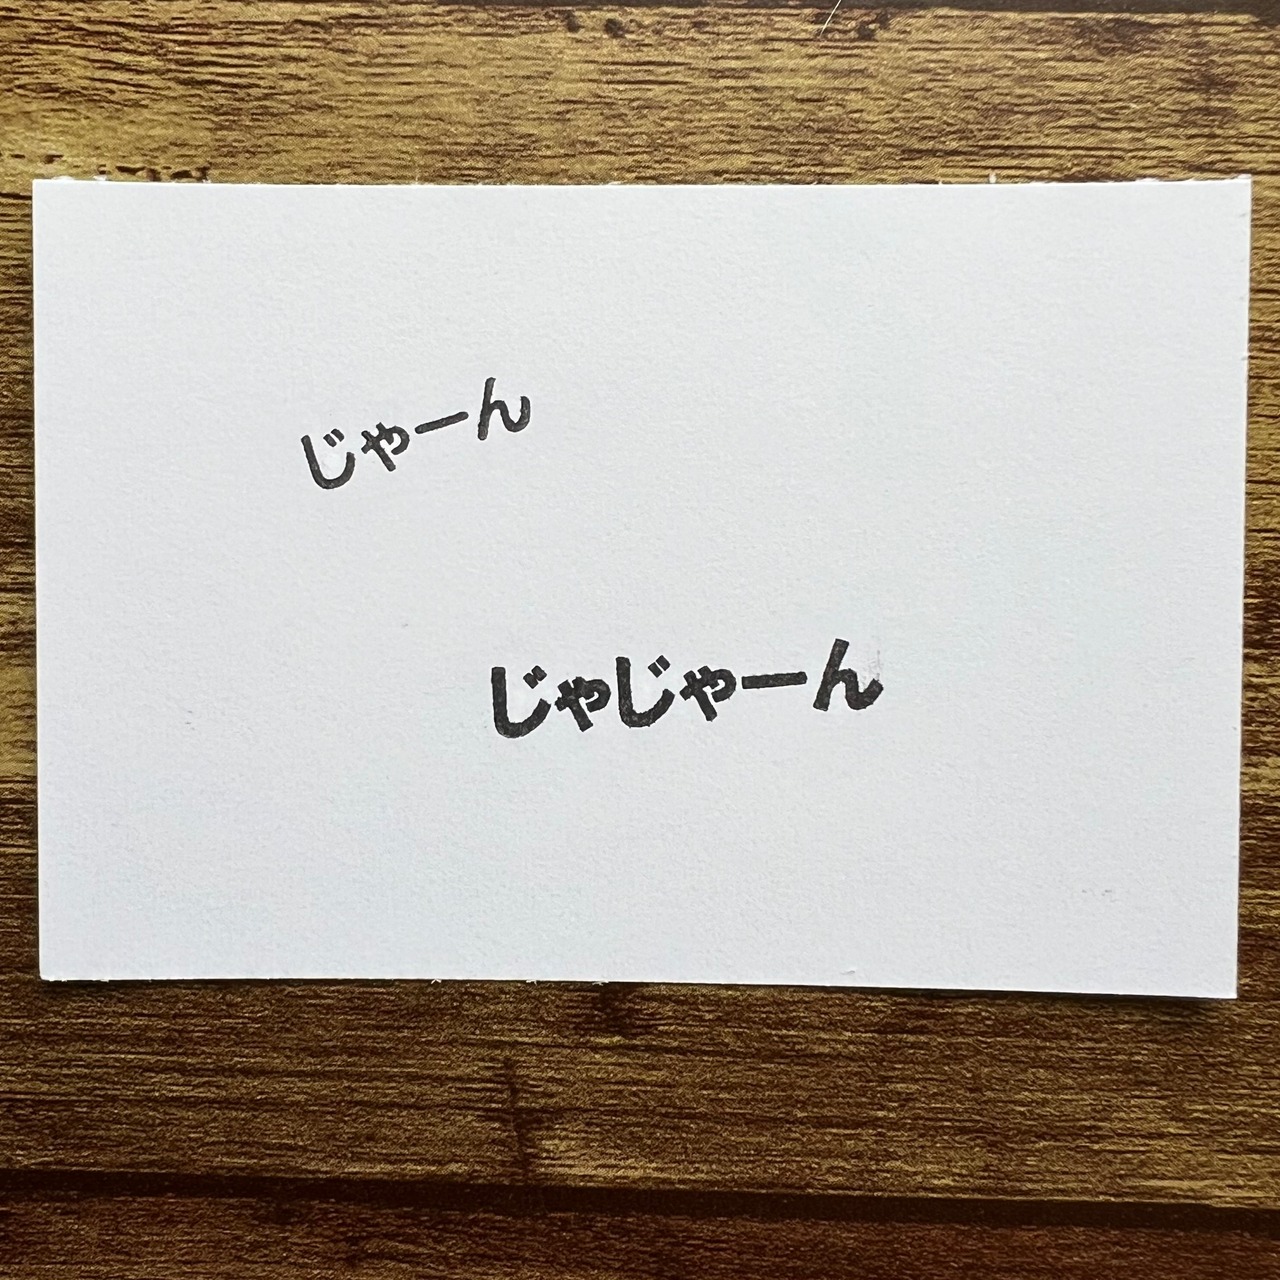 じゃーん
じゃじゃーん